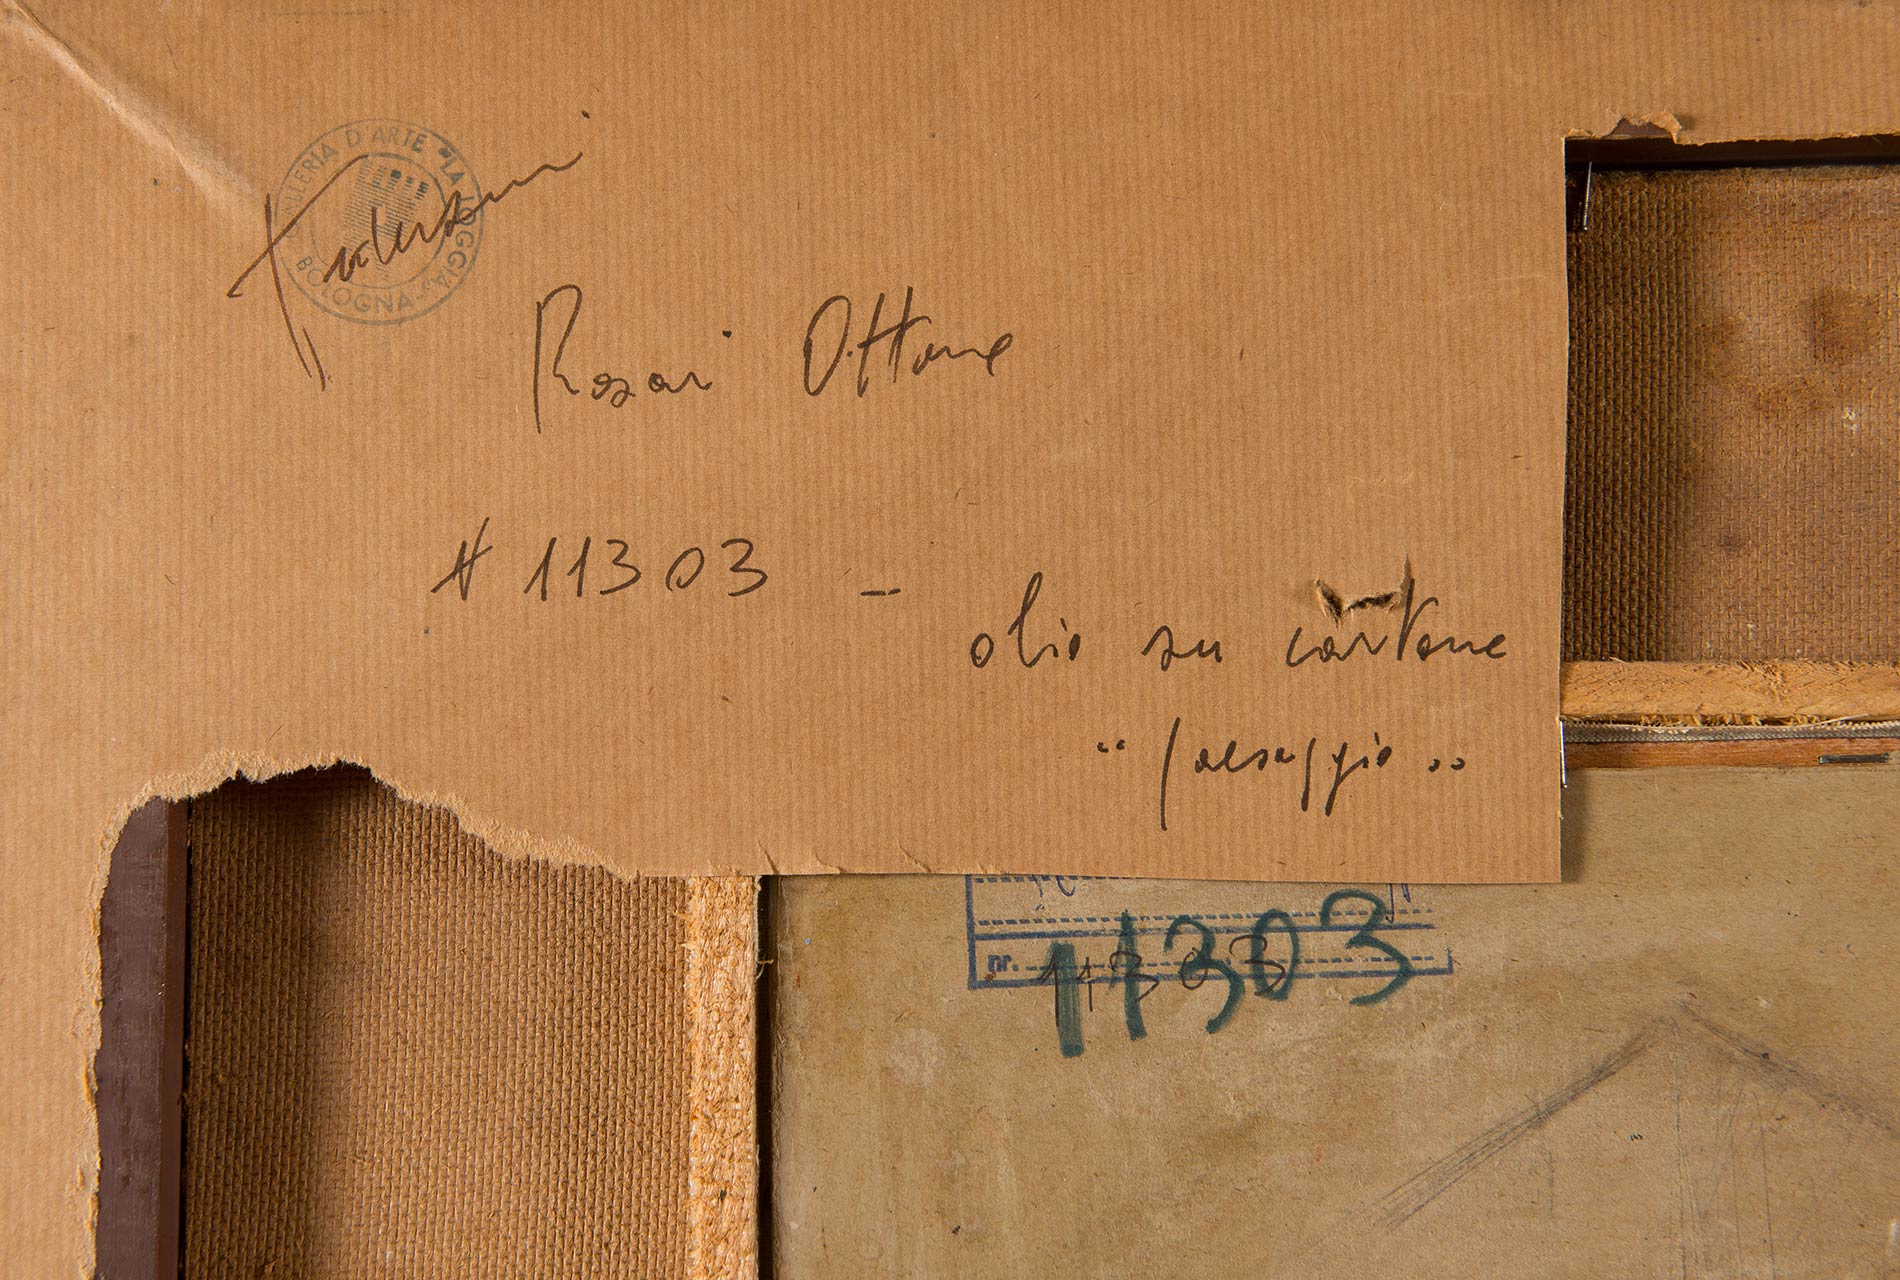 GALLERIA D'ARTE "LA LOGGIA" BOLOGNA
Rosai Ottone
# 11303 - olio su cartone
"paesaggio"
nr. 11303
11303